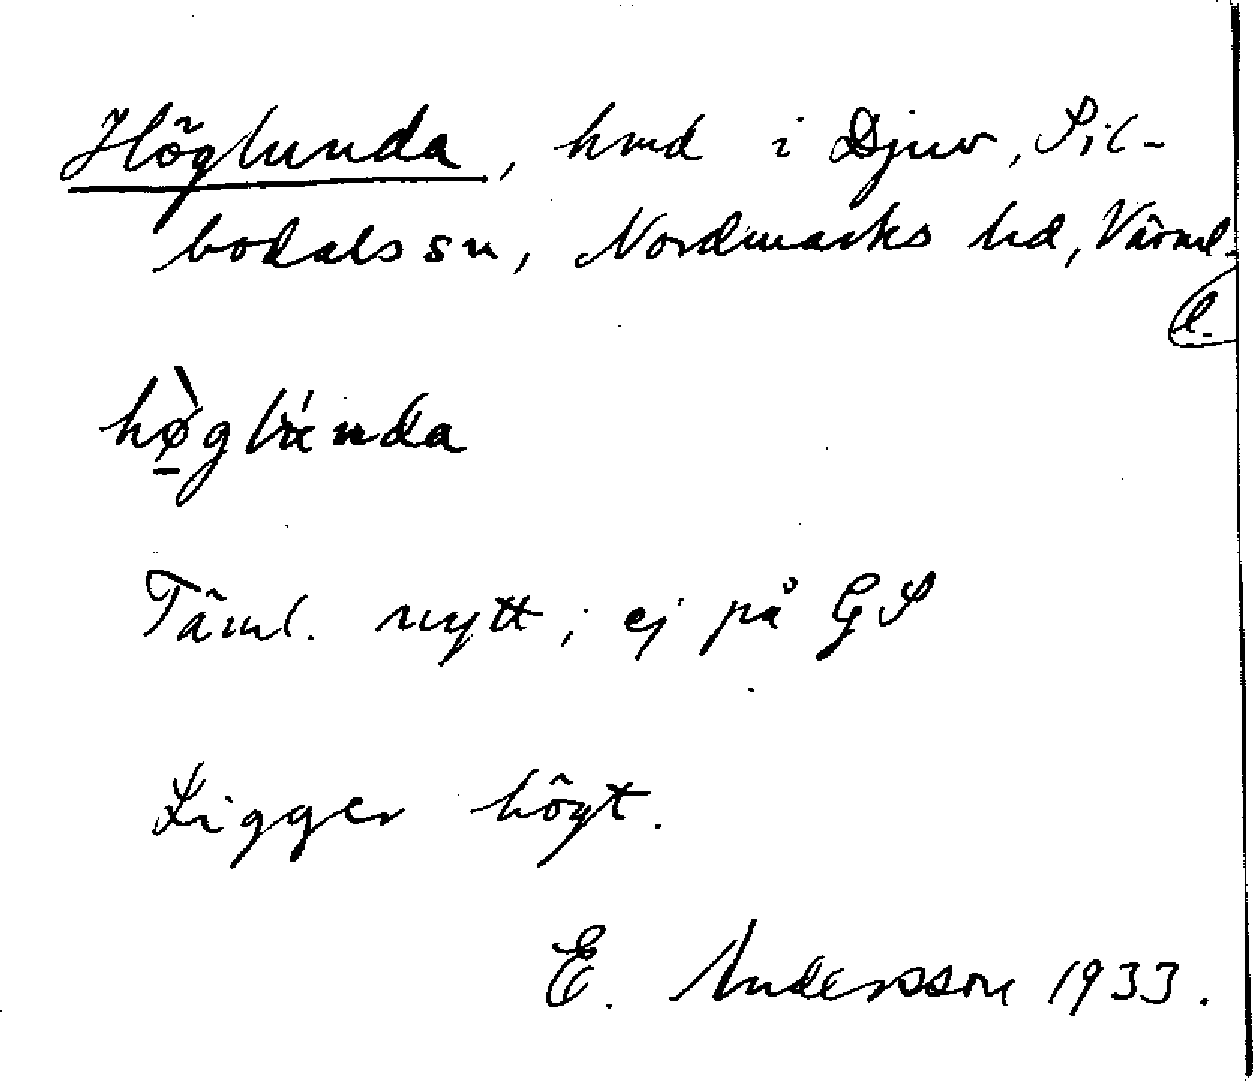 Höglunda, hmd i Djuv, Sil-
bodals sn, Nordmarks hd, Värml.
l.
Täml. nytt; ej på GS
Ligger högt.
E. Andersson 1933.